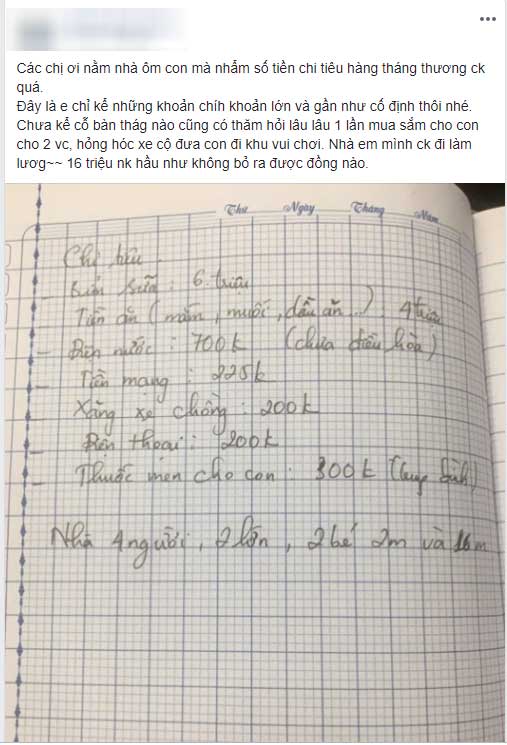 Các chị ơi nằm nhà ôm con mà nhẩm số tiền chi tiêu hàng tháng thương ck
quá.
Đây là e chỉ kể những khoản chíh khoản lớn và gần như cố định thôi nhé.
Chưa kể cỗ bàn thág nào cũng có thăm hỏi lâu lâu 1 lần mua sắm cho con
cho 2 vc, hỏng hóc xe cộ đưa con đi khu vui chơi. Nhà em mình ck đi làm
lươg~~ 16 triệu nk hầu như không bỏ ra được đồng nào.
Thứ Ngày Tháng Năm
Chi tiêu.
- Bỉm sữa: 6 triệu
Tiền ăn (mắm, muối, dầu ăn...): 4 triệu
- Điện nước: 700k (chưa điều hòa)
- Tiền mạng: 225k
Xăng xe chồng: 200k
- Điện thoại: 200k
- Thuốc men cho con: 300k (trung bình)
Nhà 4 người, 2 lớn, 2 bé 2m và 16m